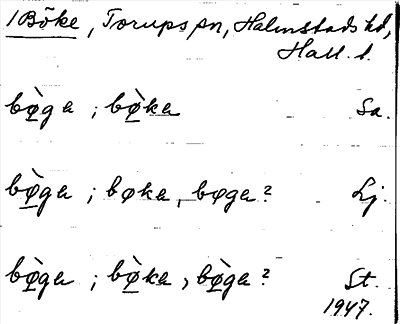 1 Böke, Torups sn, Halmstads hd,
Hall. l.
bø̀ga ; bø̀ka Sa.
bø̀ga ; bøka, bøga? Lj.
bø̀ga ; bø̀ka, bø̀ga? St.
1947.